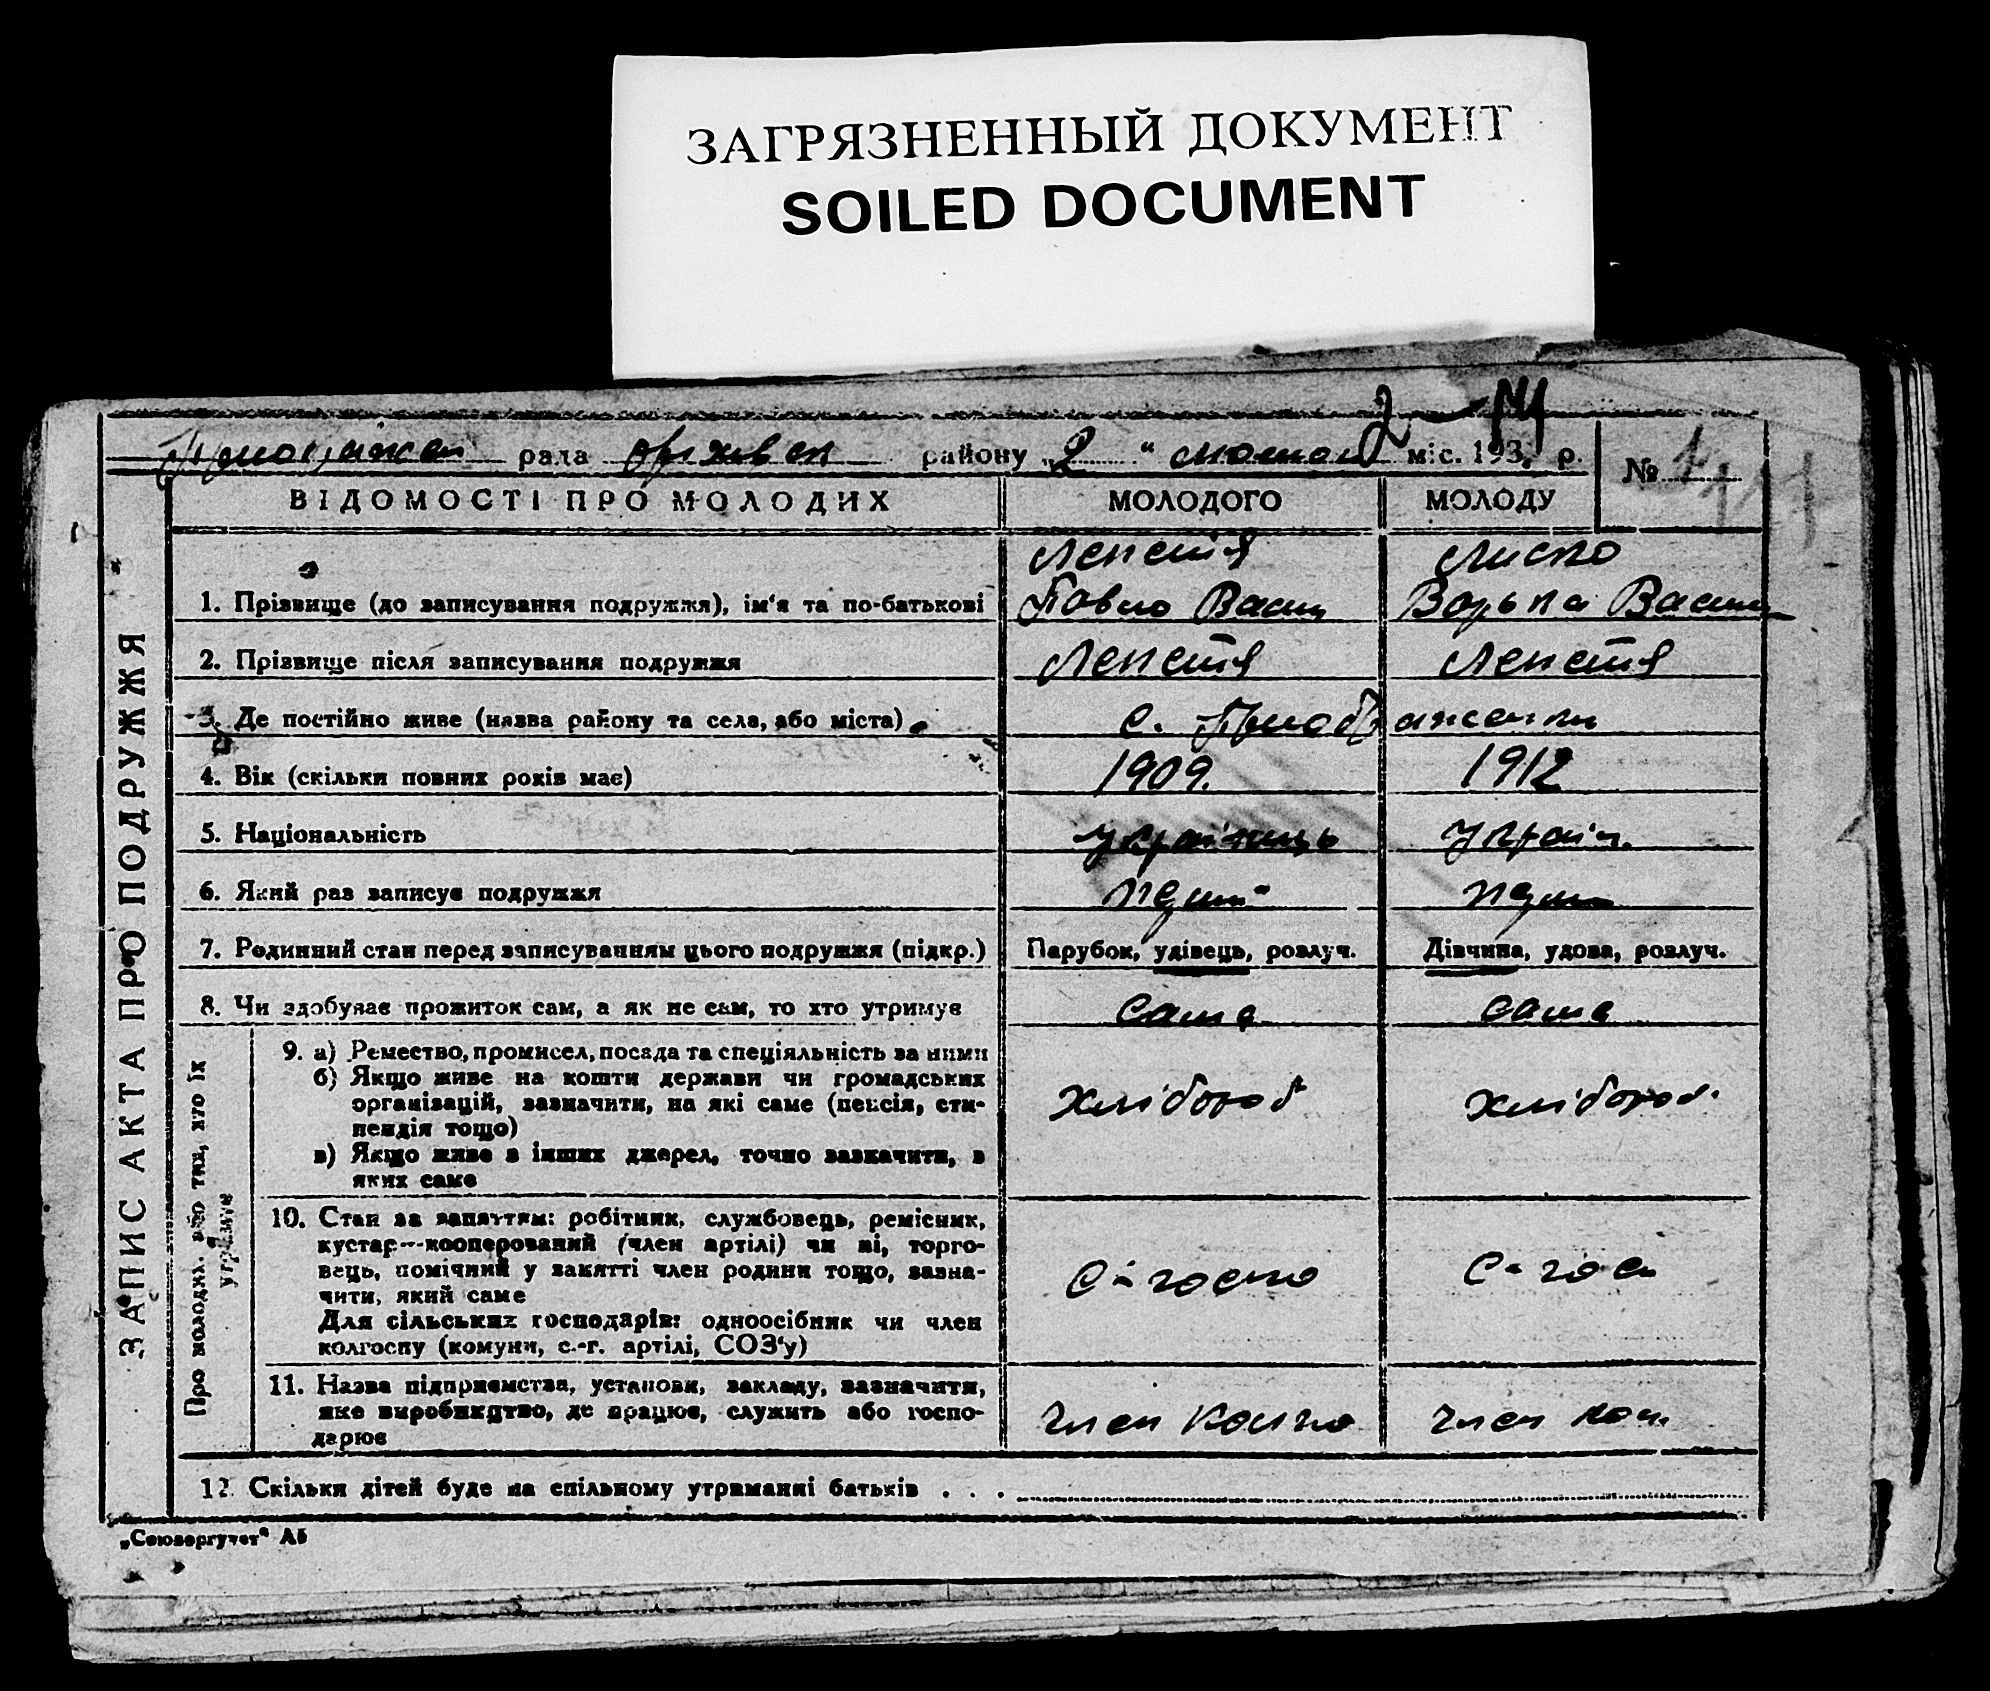 ЗАГРЯЗНЕННЫЙ ДОКУМЕНТ
SOILED DOCUMENT
рада району „2 “ міс. 193 р. №
ВІДОМОСТІ ПРО МОЛОДИХ МОЛОДОГО МОЛОДУ
ЗАПИС АКТА ПРО ПОДРУЖЖЯ
1. Прізвище (до записування подружжя), ім'я та по-батькові Павло Васил
2. Прізвище після записування подружжя
3. Де постійно живе (назва району та села, або міста) с.
4. Вік (скільки повних років має) 1909. 1912
5. Національність Українець Україн.
6. Який раз записує подружжя
7. Родинний стан перед записуванням цього подружжя (підкр.) Парубок, удівець, розлуч. Дівчина, удова, розлуч.
8. Чи здобуває прожиток сам, а як не сам, то хто утримує
Про молодих. або тих, хто їх утримує
9. а) Ремество, промисел, посада та спеціяльність за ними
б) Якщо живе на кошти держави чи громадських
організацій, зазначити, на які саме (пенсія, сти-
пендія тощо)
в) Якщо живе з інших джерел, точно зазначити, з
яких саме
хлібороб хлібороб.
10. Стан за заняттям: робітник, службовець, ремісник,
кустар—кооперований (член артілі) чи ні, торго-
вець, помічний у занятті член родини тощо, зазна-
чити, який саме
Для сільських господарів: одноосібник чи член
колгоспу (комуни, с.-г. артілі, СОЗ'у)
11. Назва підприємства, установи, закладу, зазначити,
яке виробництво, де працює, служить або госпо-
дарює
член член
12. Скільки дітей буде на спільному утриманні батьків . . .
„Союзоргучет“ АБ